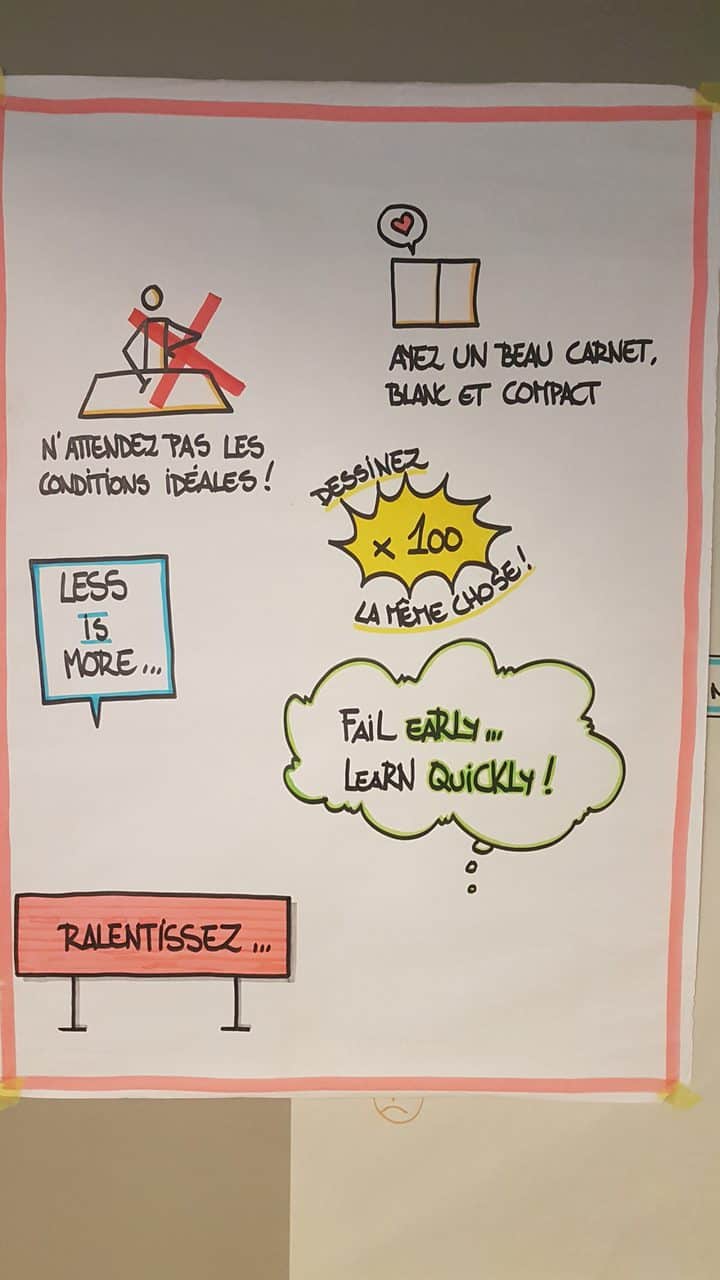 AYEZ UN BEAU CARNET,
BLANC ET COMPACT
N'ATTENDEZ PAS LES
CONDITIONS IDÉALES !
DESSINEZ
x 100
LA MÊME CHOSE !
LESS
IS
MORE...
FAIL EARLY...
LEARN QUICKLY !
RALENTISSEZ...